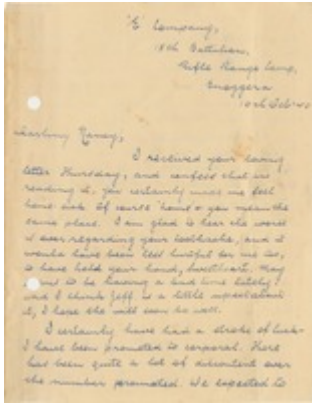 'E' Company,
Battalion,
Rifle Range Camp,
Enoggera
10th Oct
Darling
I received your loving
letter Thursday, and confess that on
reading it, you certainly made me feel
home sick. Of course 'home' & you mean the
same place. I am glad to hear the worst
is over regarding your toothache, and it
would have been less hurtful for me too,
to have held your hand, Sweetheart. May
to be having a bad time lately
and I think Jeff is a little upset about
it, I hope she will soon be well.
I certainly have had a stroke of luck
I have been promoted to corporal. There
has been quite a lot of discontent over
the number promoted. We expected to